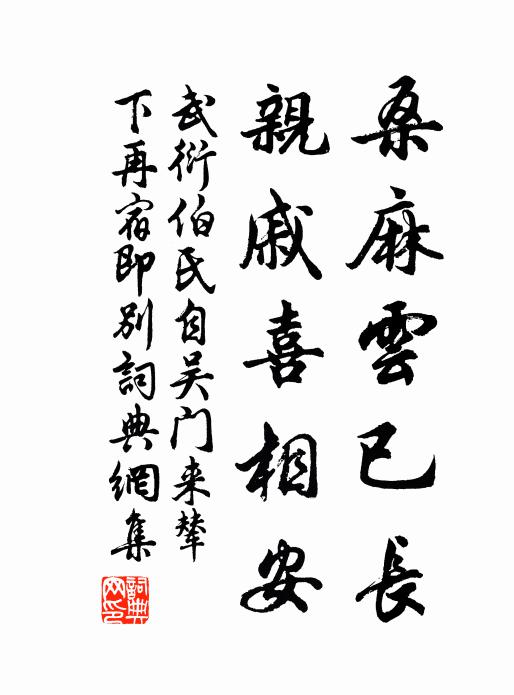 桑麻雲已長
親戚喜相安
武衍伯氏自吴门来辇
下再宿即别詞典網集
詞典网印